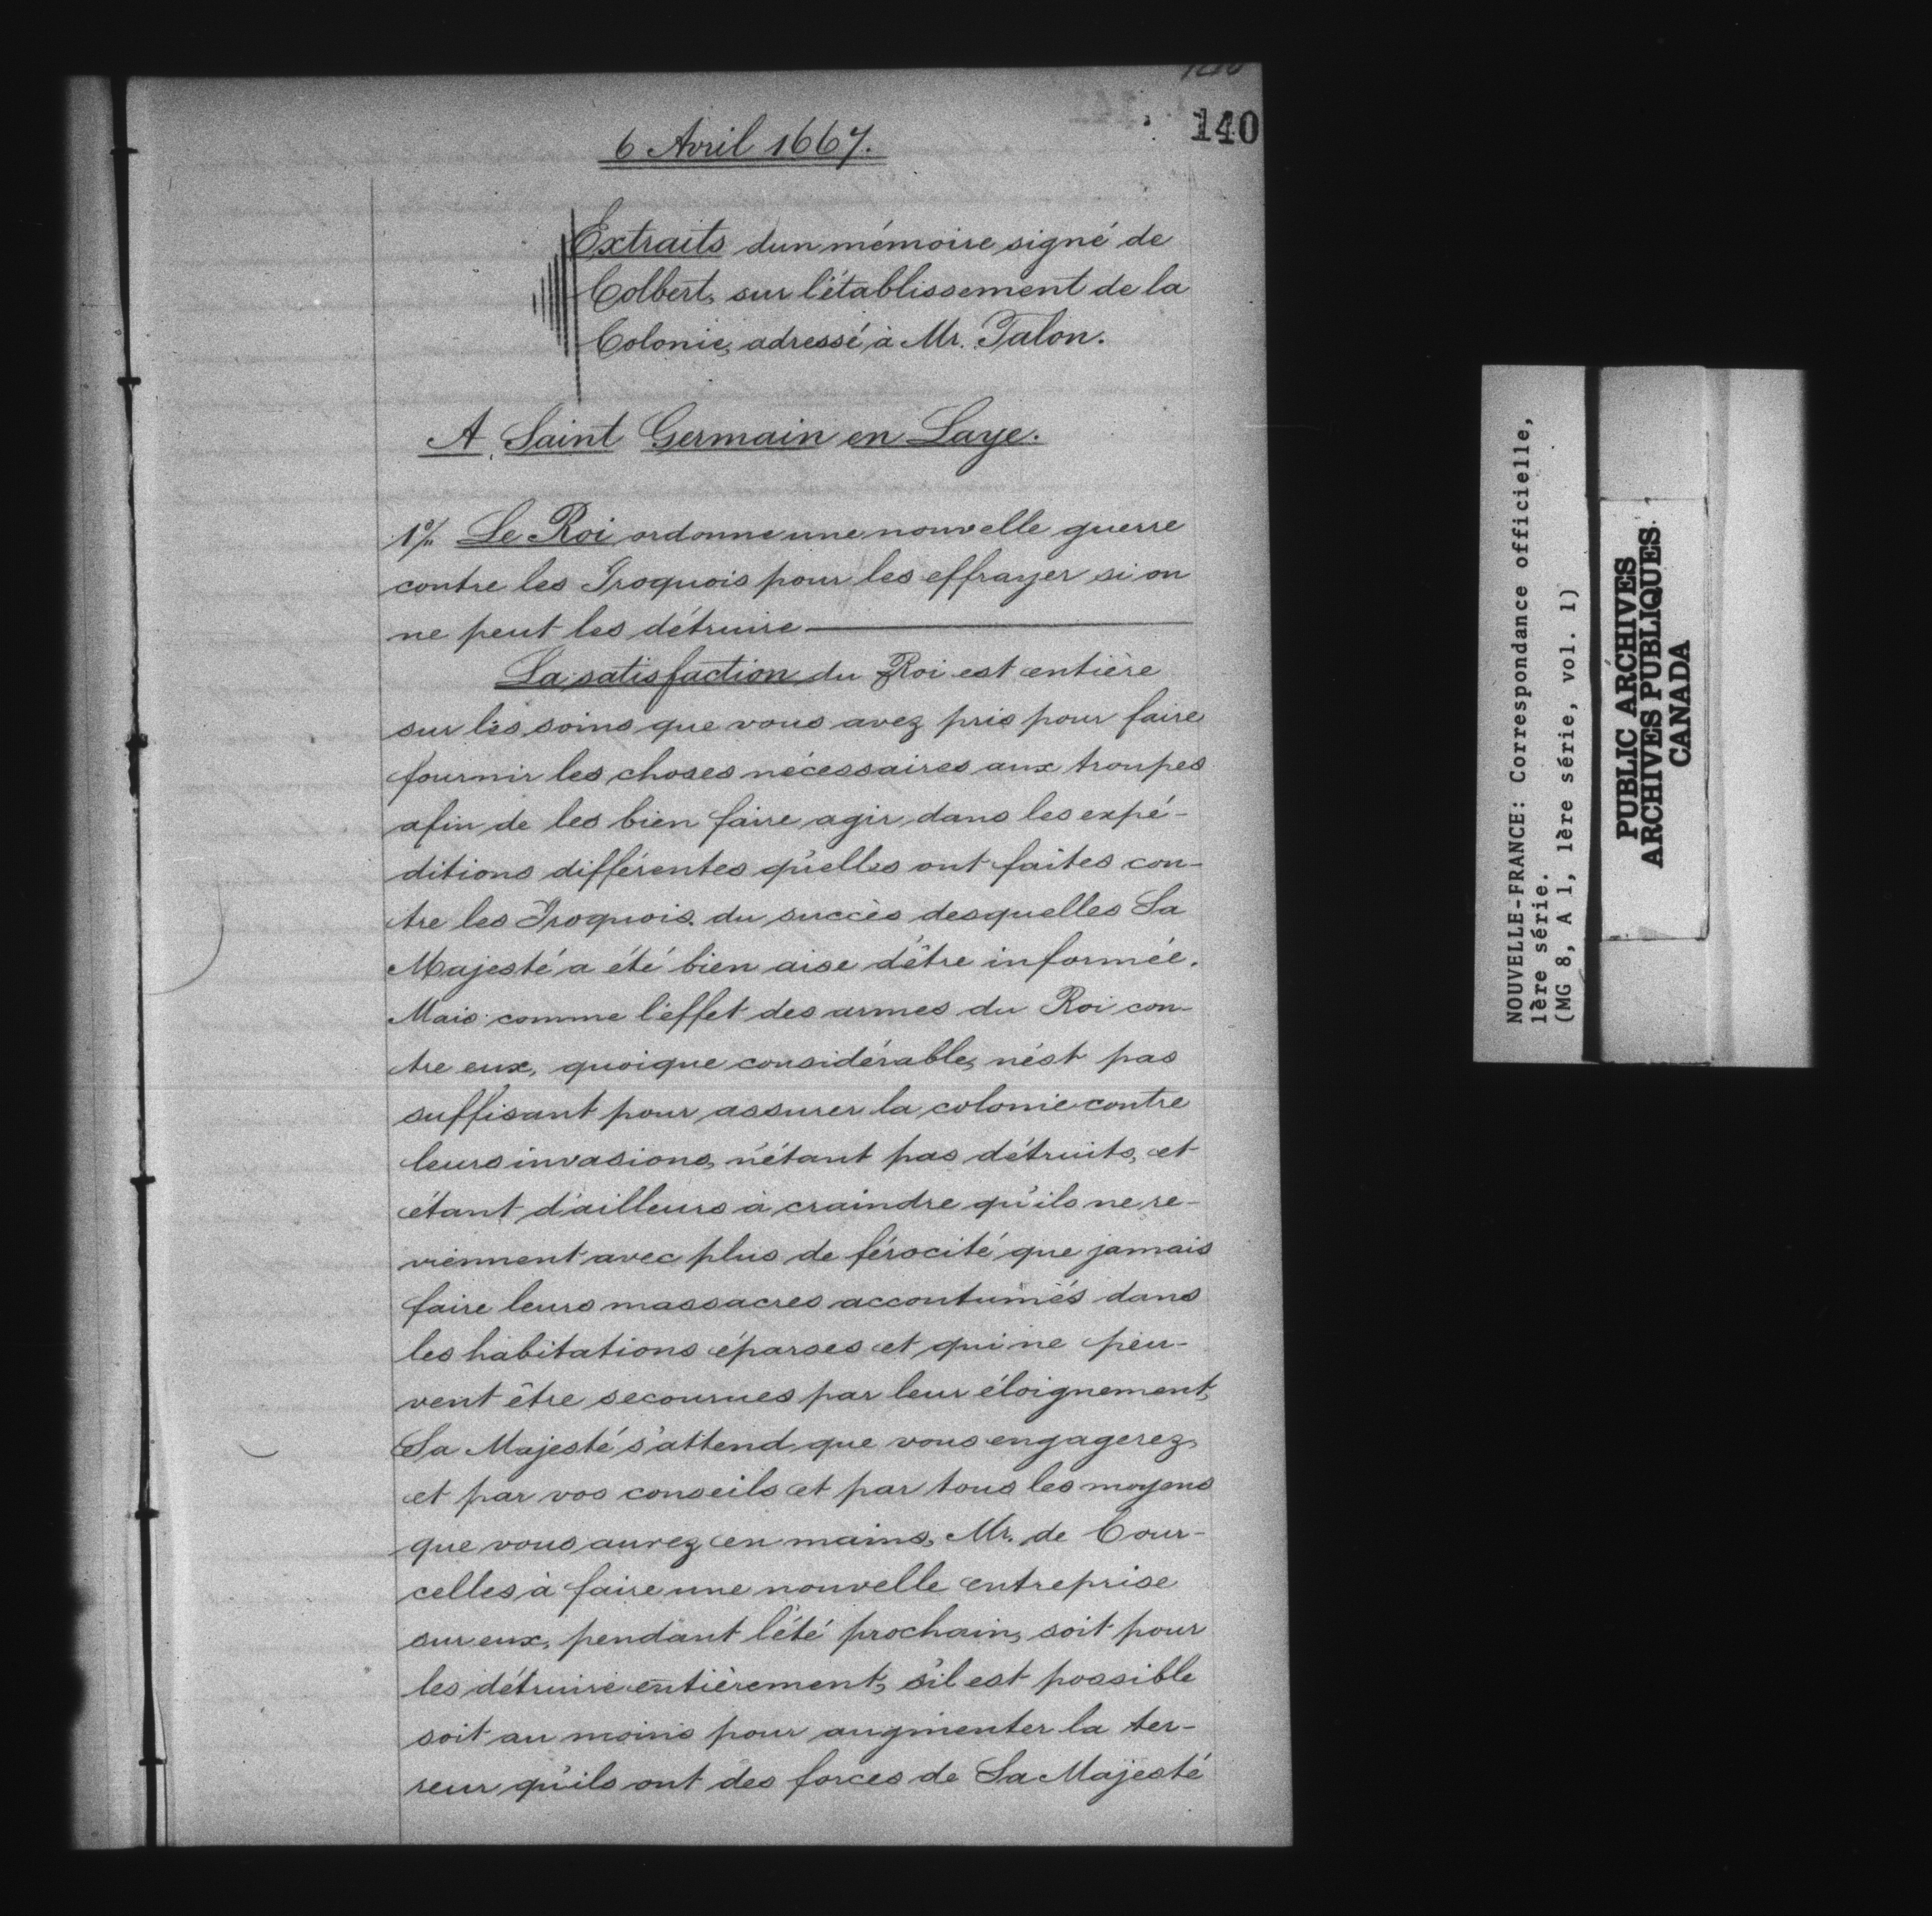 140
6 Avril 1667.
Extraits d'un mémoire signé de
Colbert, sur l'établissement de la
Colonie, adressé à Mr. Talon.
A Saint Germain en Laye.
1º/. Le Roi ordonne une nouvelle guerre
contre les Iroquois pour les effrayer si on
ne peut les détruire
La satisfaction du Roi est entière
sur les soins que vous avez pris pour faire
fournir les choses nécessaires aux troupes
afin de les bien faire agir dans les expé-
ditions différentes qu'elles ont faites con-
tre les Iroquois. du succès desquelles Sa
Majesté a été bien aise d'être informée.
Mais comme l'effet des armes du Roi con-
tre eux, quoique considérable, n'est pas
suffisant pour assurer la colonie contre
leurs invasions, n'étant pas détruits, et
étant d'ailleurs à craindre qu'ils ne re-
viennent avec plus de férocité que jamais
faire leurs massacres accoutumés dans
les habitations éparses et qui ne peu-
vent être secourues par leur éloignement,
Sa Majesté s'attend que vous engagerez
et par vos conseils et par tous les moyens
que vous aurez en mains, Mr. de Cour-
celles à faire une nouvelle entreprise
sur eux, pendant l'été prochain, soit pour
les détruire entièrement, s'il est possible
soit au moins pour augmenter la ter-
reur qu'ils ont des forces de Sa Majesté
NOUVELLE-FRANCE: Correspondance officielle,
1ère série.
(MG 8, A 1, 1ère série, vol. 1)
PUBLIC ARCHIVES
ARCHIVES PUBLIQUES
CANADA